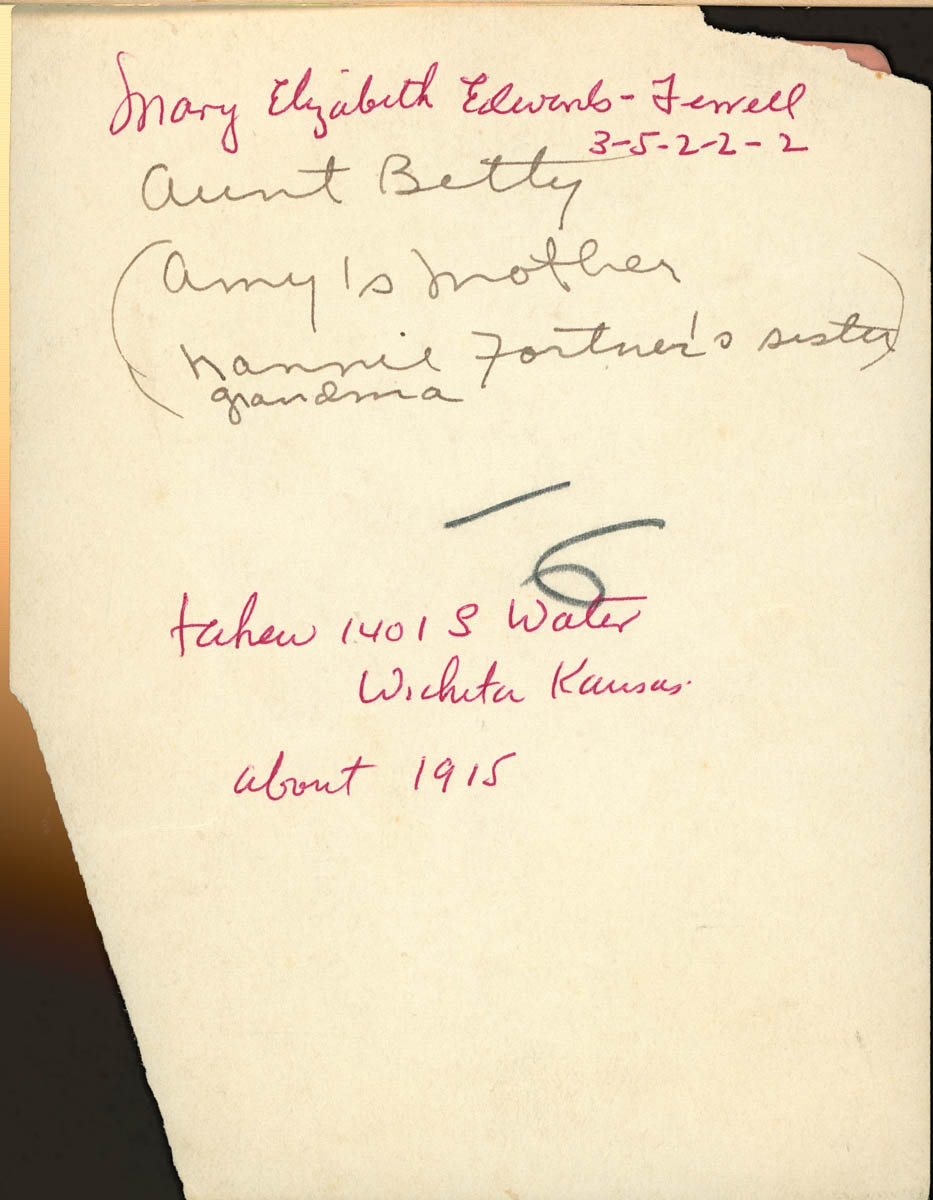 Mary Elizabeth Edwards - Ferrell
3-5-2-2-2
Aunt Betty
(Amy's mother
Nannie Fortner's sister)
grandma
- 6
taken 1401 S Water
Wichita Kansas.
about 1915